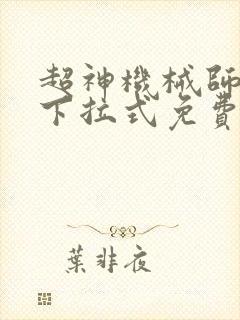 超神機械師
下拉式免費
葉非夜